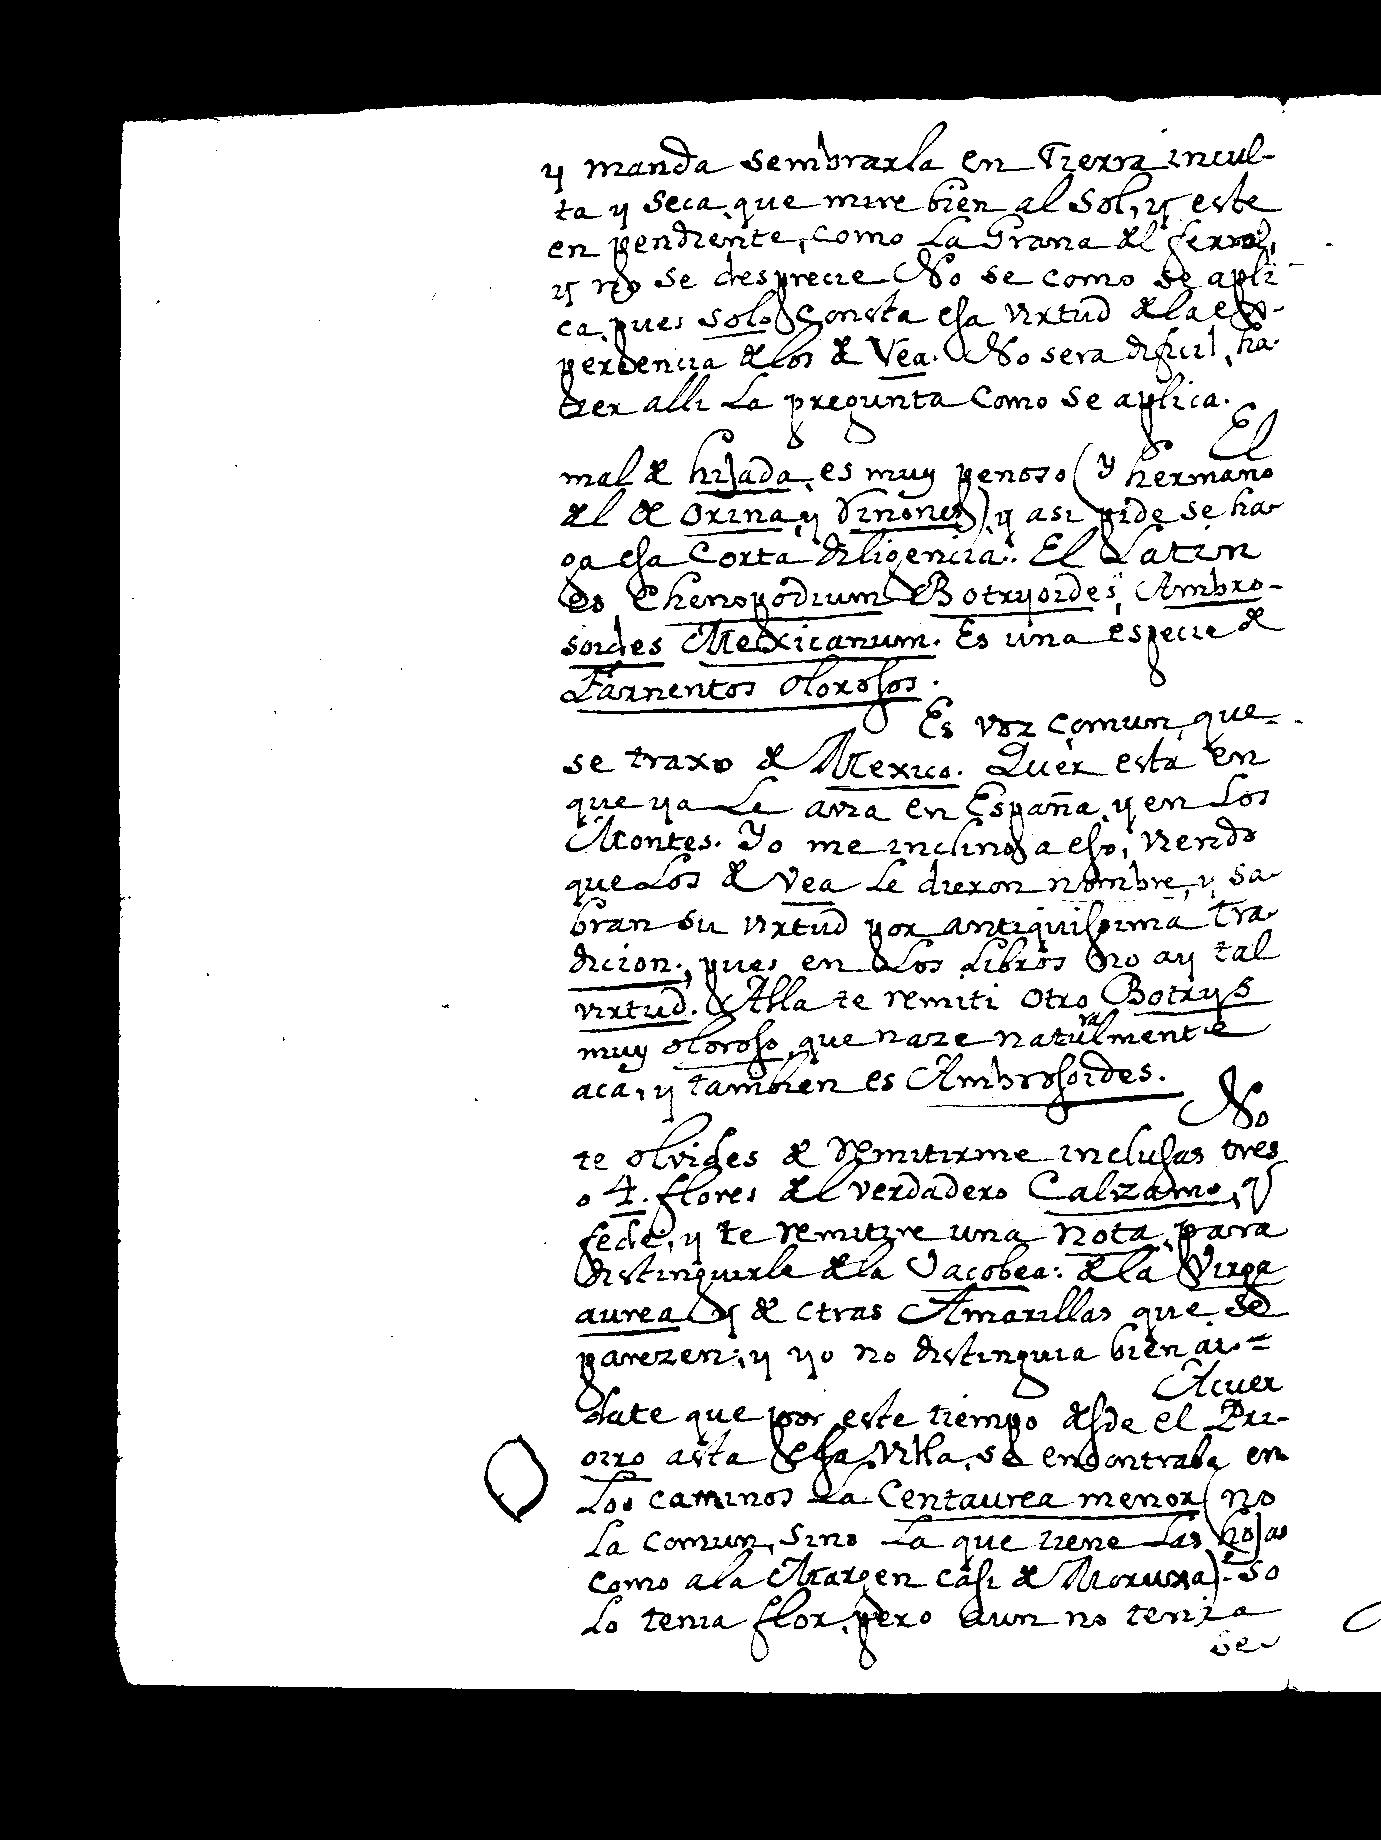 y manda sembrarla en Tierra incul-
ta y seca, que mire bien al Sol, y este
en pendiente, como La Grana del ferrol,
y no se desprecie No se como se apli
ca, pues solo consta esa virtud de la ex-
perdencia de los de Vea. No sera dificil, ha-
zer alli La pregunta Como se aplica.
El
mal de hijada, es muy penoso (y hermano
del de Orina, y Rinones), y asi pide se ha-
ga esa Corta diligencia. El Latin
es Chenopodium Botryoides, Ambro-
soides Mexicanum. Es una especie de
Farnentos olorosos.
Es voz comun, que
se traxo de Mexico. Quer esta en
que ya Le avia en España, y en Los
Montes. Yo me inclino a eso, viendo
que Los de Vea Le dieron nombre, y sa
bran su virtud por antiquisima Tra-
dicion, pues en Los Libros no ay tal
virtud. Alla te remiti otro Botrys
muy oloroso, que naze naturalmente
aca, y tambien es Ambrosoides.
No
te olvides de remitirme inclusas tres
o 4. flores del verdadero Calizamo, q
fede, y te remitire una nota, para
distinguirle de la Jacobea: de la Virga
aurea y de otras Amarillas que se
parezen, y yo no distinguia bien ai.=
Acuer
date que por este tiempo desde el Pri-
orro asta esa Villa, se encontraba en
Los caminos La Centaurea menor (no
La comun, sino La que tiene Las hojas
como a la Margen casi de Moruxa). so
Lo tenia flor, pero aun no tenia
se